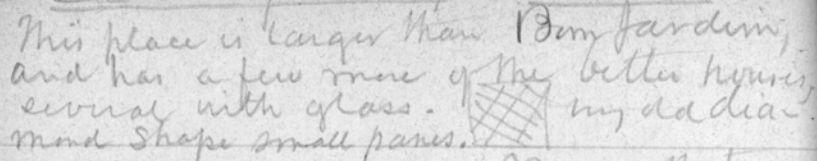 This place is larger than Bom Jardim,
and has a few more of the better houses,
several with glass. in old dia-
mond shape small panes.